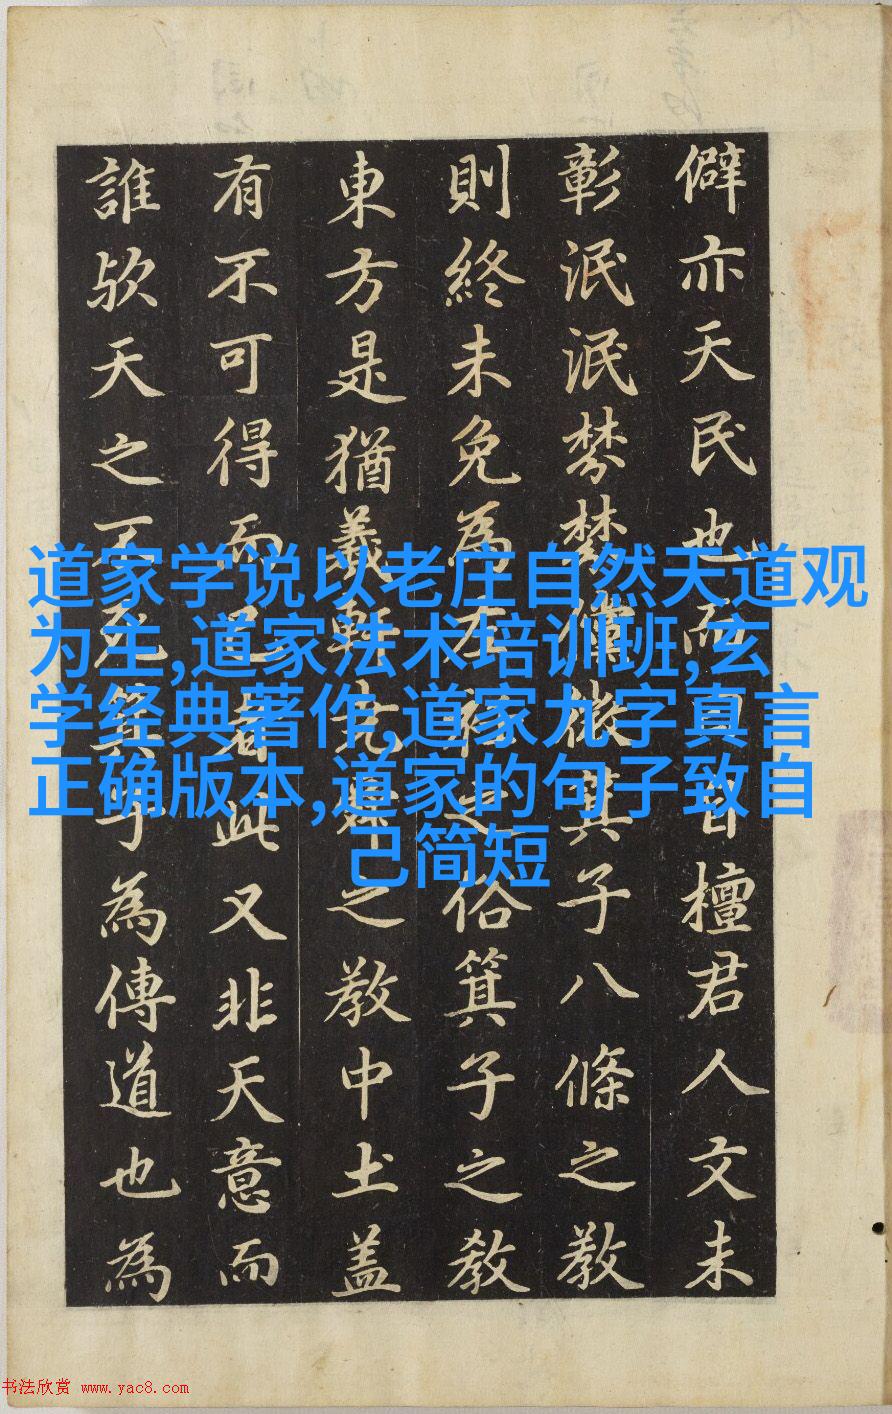 僻亦天民也而檀君人文未
彰泯泯棼棼微箕子八條之教
則終未免為左衽之俗箕子之教
東方是猶羲軒堯舜之教中土盖
有不可得而已者此又非天意而
誰歟天之不死箕子為傳道也為
道家学说以老庄自然天道观
为主,道家法术培训班,玄
学经典著作,道家九字真言
正确版本,道家的句子致自
己简短
书法欣赏 www.yac8.com